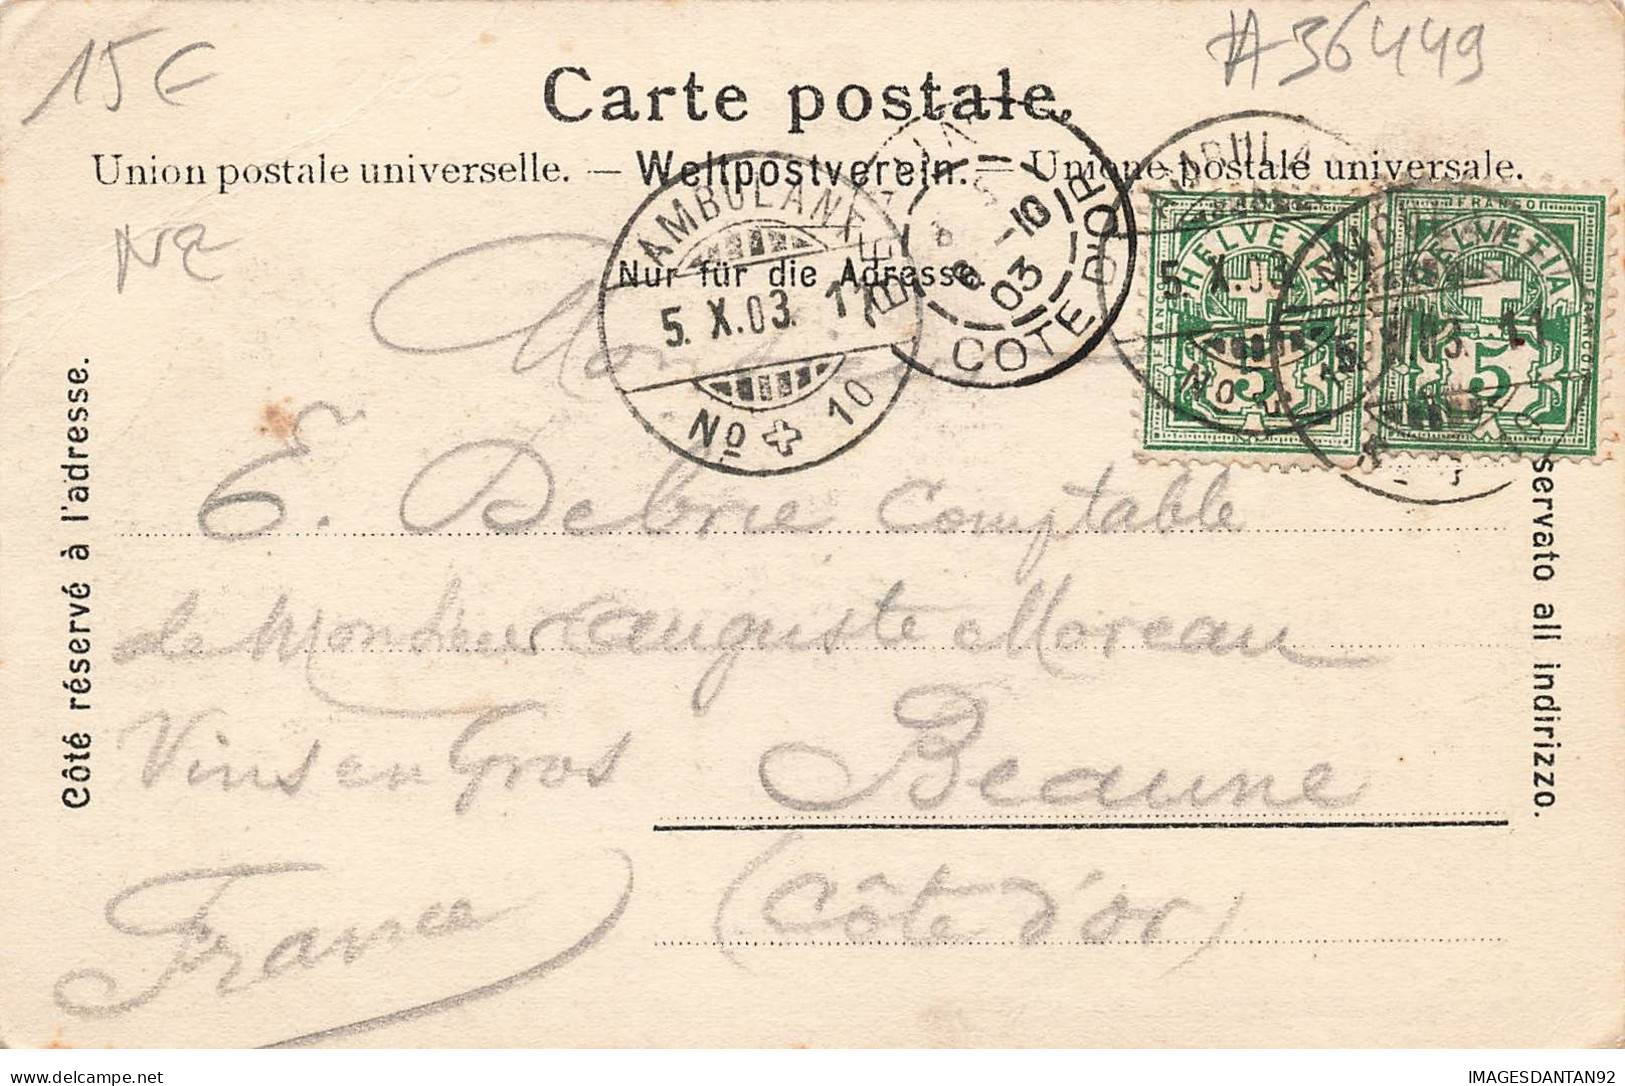 15 €
#36449
Carte postale.
Union postale universelle. — Weltpostverein. — Unione postale universale.
NZ
Nur für die Adresse.
AMBULANT
5. X. 03. 11
No 10
6 -10
03
COTE D'OR
AMBULA
5. X. 03.
No
HELVETIA
FRANCO
5
HELVETIA
FRANCO
5
Côté réservé à l'adresse.
servato all indirizzo.
E. Debrie Comptable
de Monsieur Auguste Moreau
Vins en Gros Beaune
France (Côte d'or)
IMAGESDANTAN92